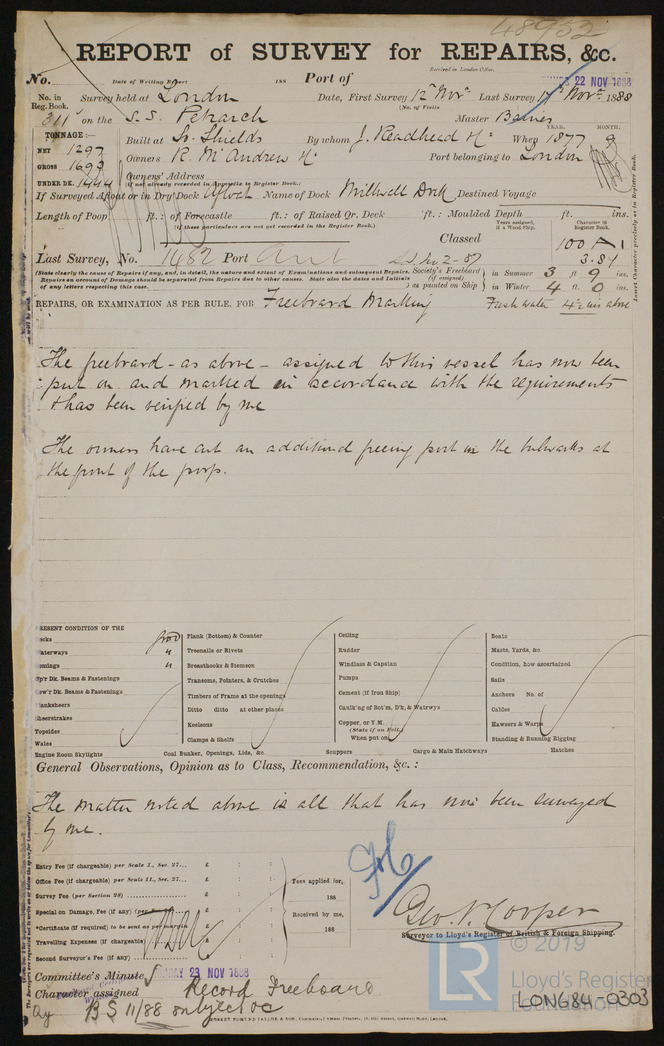 48952
REPORT of SURVEY for REPAIRS, &c.
No. Date of Writing Report 188 Port of Received in London Office, 22 NOV 1888
No. in Reg. Book. Survey held at London Date, First Survey 12th Novr Last Survey 17th Novr 1888
(No. of Visits
311 on the S.S. Petrarch Master Baines
TONNAGE:— Built at So. Shields By whom J. Readhead & Co When 1877 9 YEAR. MONTH.
NET 1297
GROSS 1693 Owners R. McAndrew & Co Port belonging to London
UNDER DK. 1444 Owners' Address
(if not already recorded in Appendix to Register Book.)
If Surveyed Afloat or in Dry Dock Afloat Name of Dock Millwall Dock Destined Voyage
Length of Poop ft.: of Forecastle ft.: of Raised Qr. Deck ft.: Moulded Depth ft. ins.
(if these particulars are not yet recorded in the Register Book.)
Years assigned, if a Wood Ship. Character in Register Book.
Classed 100 A 1
Last Survey, No. 1482 Port Ant 3.87
(State clearly the cause of Repairs if any, and, in detail, the nature and extent of Examinations and subsequent Repairs. Repairs on account of Damage should be separated from Repairs due to other causes. State also the dates and Initials of any letters respecting this case.
Society's Freeboard (if assigned) as painted on Ship in Summer 3 ft 9 ins.
in Winter 4 ft. 0 ins.
REPAIRS, OR EXAMINATION AS PER RULE, FOR Freeboard Marking Fresh water 4½ ins above
Insert Character precisely as in Register Book.
The freeboard - as above - assigned to this vessel has now been
put on and marked in accordance with the requirements
& has been verified by me
The owners have cut an additional freeing port in the bulwarks at
the front of the poop.
PRESENT CONDITION OF THE
Decks good
Waterways "
Comings "
Up'r Dk. Beams & Fastenings
Low'r Dk. Beams & Fastenings
Planksheers
Sheerstrakes
Topsides
Wales
Engine Room Skylights
Plank (Bottom) & Counter
Treenails or Rivets
Breasthooks & Stemson
Transoms, Pointers, & Crutches
Timbers of Frame at the openings
Ditto ditto at other places
Keelsons
Clamps & Shelfs
Coal Bunker, Openings, Lids, &c.
Ceiling
Rudder
Windlass & Capstan
Pumps
Cement (if Iron Ship)
Caulk'g of Bot'm, D'k, & Watrwys
Copper, or Y.M.
(State if on Felt.)
When put on
Scuppers
Cargo & Main Hatchways
Boats
Masts, Yards, &c.
Condition, how ascertained
Sails
Anchors No. of
Cables
Hawsers & Warps
Standing & Running Rigging
Hatches
General Observations, Opinion as to Class, Recommendation, &c.:
The matter noted above is all that has now been surveyed
by me.
Entry Fee (if chargeable) per Scale I., Sec. 27... £ : :
Office Fee (if chargeable) per Scale II., Sec. 27... £ : :
Survey Fee (per Section 28) £ : :
Special on Damage, Fee (if any) £ : :
*Certificate (if required) to be sent as per margin £ : :
Travelling Expenses (if chargeable) £ : :
Second Surveyor's Fee (if any) £ : :
Fees applied for,
188
Received by me,
188
Geo. N. Cooper
Surveyor to Lloyd's Register of British & Foreign Shipping.
Committee's Minute FRIDAY 23 NOV 1888
Character assigned Record Freeboard
BS 11/88 subject oc
© 2019
LR
Lloyd's Register
Foundation
LON684-0303